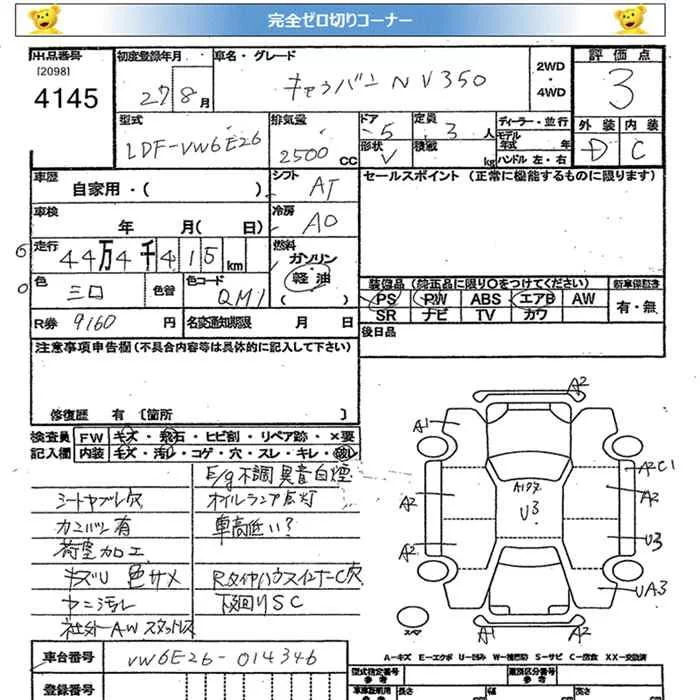 完全ゼロ切りコーナー
出品番号
[2098]
4145
初度登録年月
27 8月
車名・グレード
キャラバン NV350
2WD
・
4WD
評価点
3
型式
LDF-VW6E26
排気量
2500CC
ドア
5
定員
3人
形状
V
積載
kg
ディーラー・並行
モデル
年式 年
ハンドル 左・右
外装 内装
D C
車歴
自家用・( )
シフト
AT
セールスポイント(正常に機能するものに限ります)
車検
年 月( 日)
冷房
走行
44万4千415km
燃料
ガソリン
軽油
( )
色
色替
色コード
QM1
装備品(純正品に限り○をつけてください)
新車保証書
PS PW ABS エアB AW
SR ナビ TV カワ
有・無
R券 9160円
名変通知期限 月 日
後日品
注意事項申告欄(不具合内容等は具体的に記入して下さい)
修復歴 有 [箇所 ]
検査員
記入欄
FW キズ・飛石・ヒビ割・リペア跡・×要
内装 キズ・汚レ・コゲ・穴・スレ・キレ・破レ
E/g不調 異音白煙
シートヤブレ穴
オイルランプ点灯
カンバン有
車高低い?
荷室加工
キズU 色サメ
RタイヤハウスインナーC穴
ヤニ汚レ
下廻りSC
社外AWスタッドレス
A2
A1
A2C1
A2
A2
A2
U3
U3
UA3
A1
A2
スペア
A-キズ E-エクボ U-凹み W-補修跡 S-サビ C-腐食 XX-交換済
車台番号
VW6E26-014346
型式指定番号
参考
類別区分番号
参考
登録番号
長さ
幅
高さ